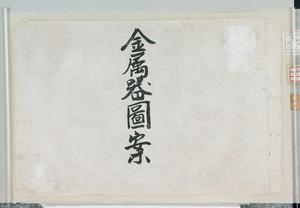 金属器圖案